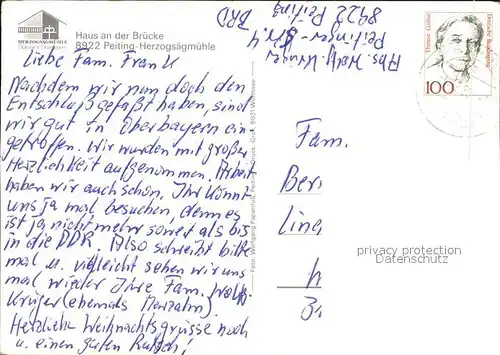 HERZOGSÄGMÜHLE
Haus an der Brücke
8922 Peiting-Herzogsägmühle
Liebe Fam. Frank
Nachdem wir nun doch den
Entschluß gefaßt haben, sind
wir gut in Oberbayern ein-
getroffen. Wir wurden mit großer
Herzlichkeit aufgenommen. Arbeit
haben wir auch schon. Ihr könnt
uns ja mal besuchen, denn es
ist ja nicht mehr so weit als bis
in die DDR. Also schreibt bitte
mal u. vielleicht sehen wir uns
mal wieder Ihre Fam. Wolfg.
Krüger (ehemals Marzahn).
Herzliche Weihnachtsgrüsse noch
u. einen guten Rutsch!
Abs.
Peitinger
8922 Peiting
BRD
Therese Giehse
Deutsche Bundespost
100
Fam.
Beri
Ling
privacy protection
Datenschutz